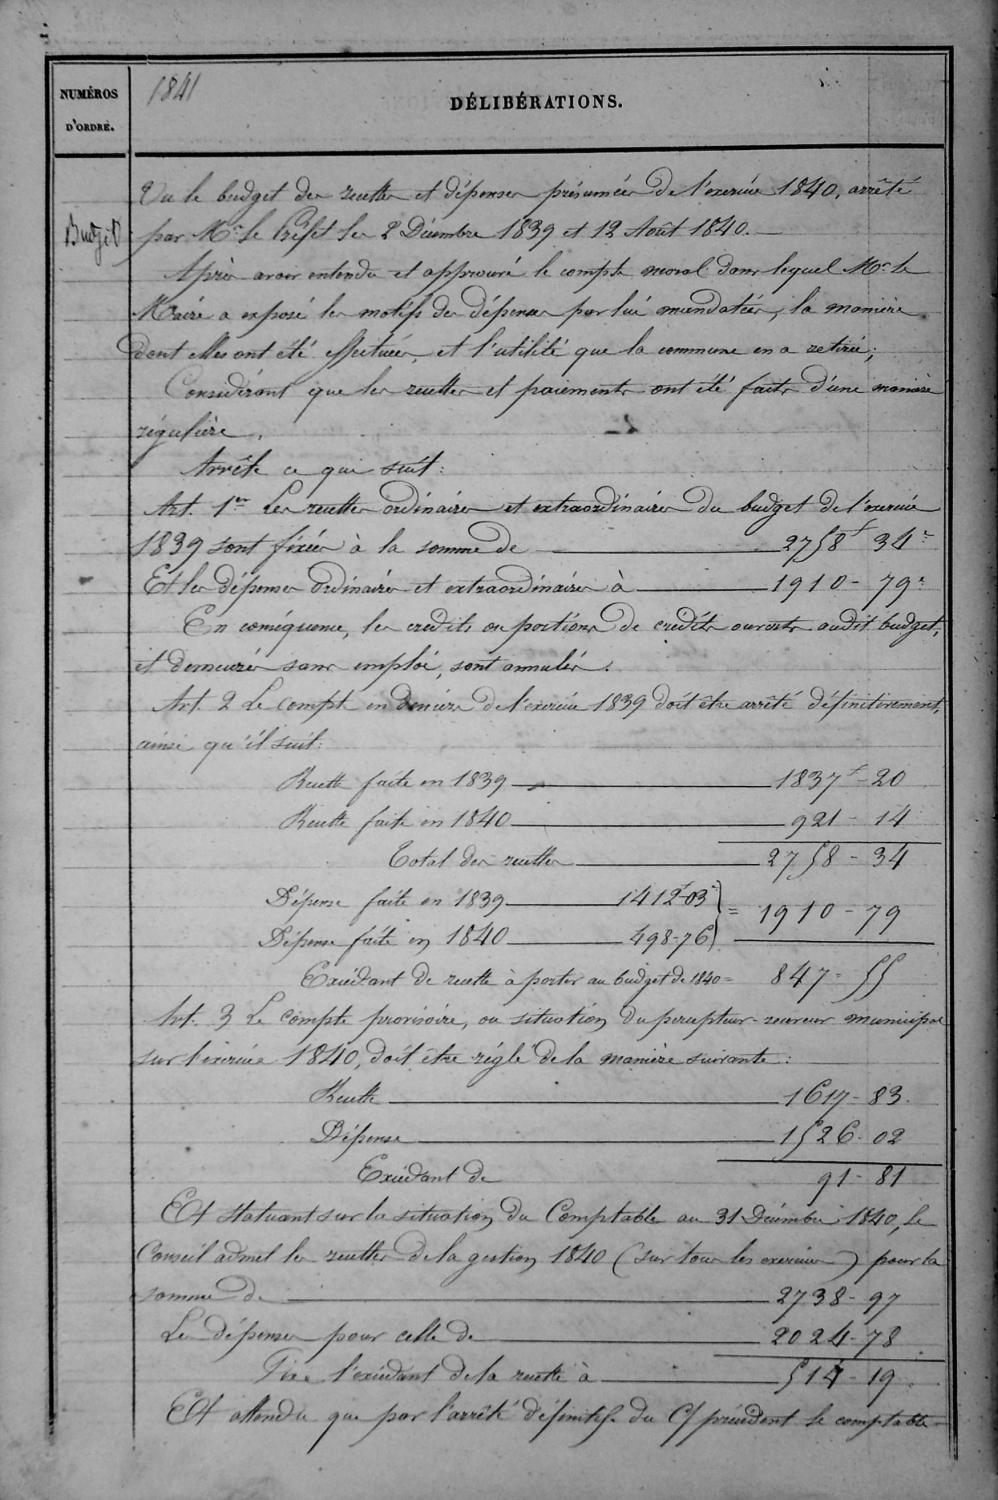 NUMÉROS
D'ORDRE.
1841
DÉLIBÉRATIONS.
Budget
Vu le budget des recettes et dépenses présumées de l'exercice 1840, arrêté
par Mr. le Préfet les 2 Décembre 1839 et 12 Août 1840.
Après avoir entendu et approuvé le compte moral dans lequel Mr. le
Maire a exposé les motifs des dépenses par lui mandatées, la manière
dont elles ont été effectuées, et l'utilité que la commune en a retirée;
Considérant que les recettes et paiements ont été faits d'une manière
régulière,
Arrête ce qui suit:
Art. 1er Les recettes ordinaires et extraordinaires du budget de l'exercice
1839 sont fixées à la somme de 2758f 34c
Et les dépenses ordinaires et extraordinaires à 1910 - 79c
En conséquence, les crédits ou portions de crédits ouverts audit budget,
et demeurés sans emploi, sont annulés.
Art. 2 Le compte en deniers de l'exercice 1839 doit être arrêté définitivement,
ainsi qu'il suit:
Recette faite en 1839 1837f - 20
Recette faite en 1840 921 - 14
Total des recettes 2758 - 34
Dépense faite en 1839 1412f-03
= 1910 - 79
Dépense faite en 1840 498-76
Excédant de recette à porter au budget de 1840 = 847 - 55
Art. 3 Le compte provisoire, ou situation du percepteur-receveur municipal
sur l'exercice 1840, doit être réglé de la manière suivante:
Recette 1617 - 83
Dépense 1526 - 02
Excédant de 91 - 81
Et statuant sur la situation du Comptable au 31 Décembre 1840, le
Conseil admet les recettes de la gestion 1840 (sur tous les exercices) pour la
somme de 2738 - 97
Les dépenses pour celle de 2024 - 78
Fixe l'excédant de la recette à 514 - 19
Et attendu que par l'arrêté définitif du C/ précédent le comptable